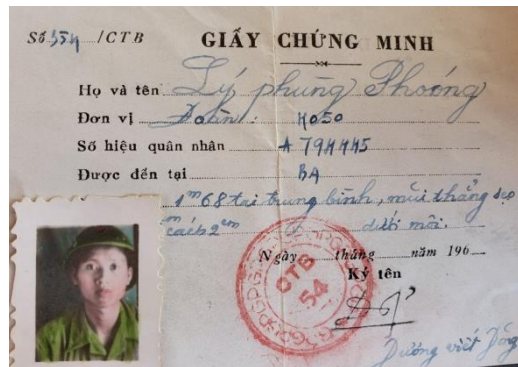 Số 354 /CTB GIẤY CHỨNG MINH
Họ và tên Lý phùng Phoóng
Đơn vị Đoàn: 4050
Số hiệu quân nhân A 794445
Được đến tại BA
1m68 tai trung bình, mũi thẳng dẹp
cách 2cm dưới môi.
Ngày tháng năm 196
Ký tên
CTB
54
Dương viết Dồng